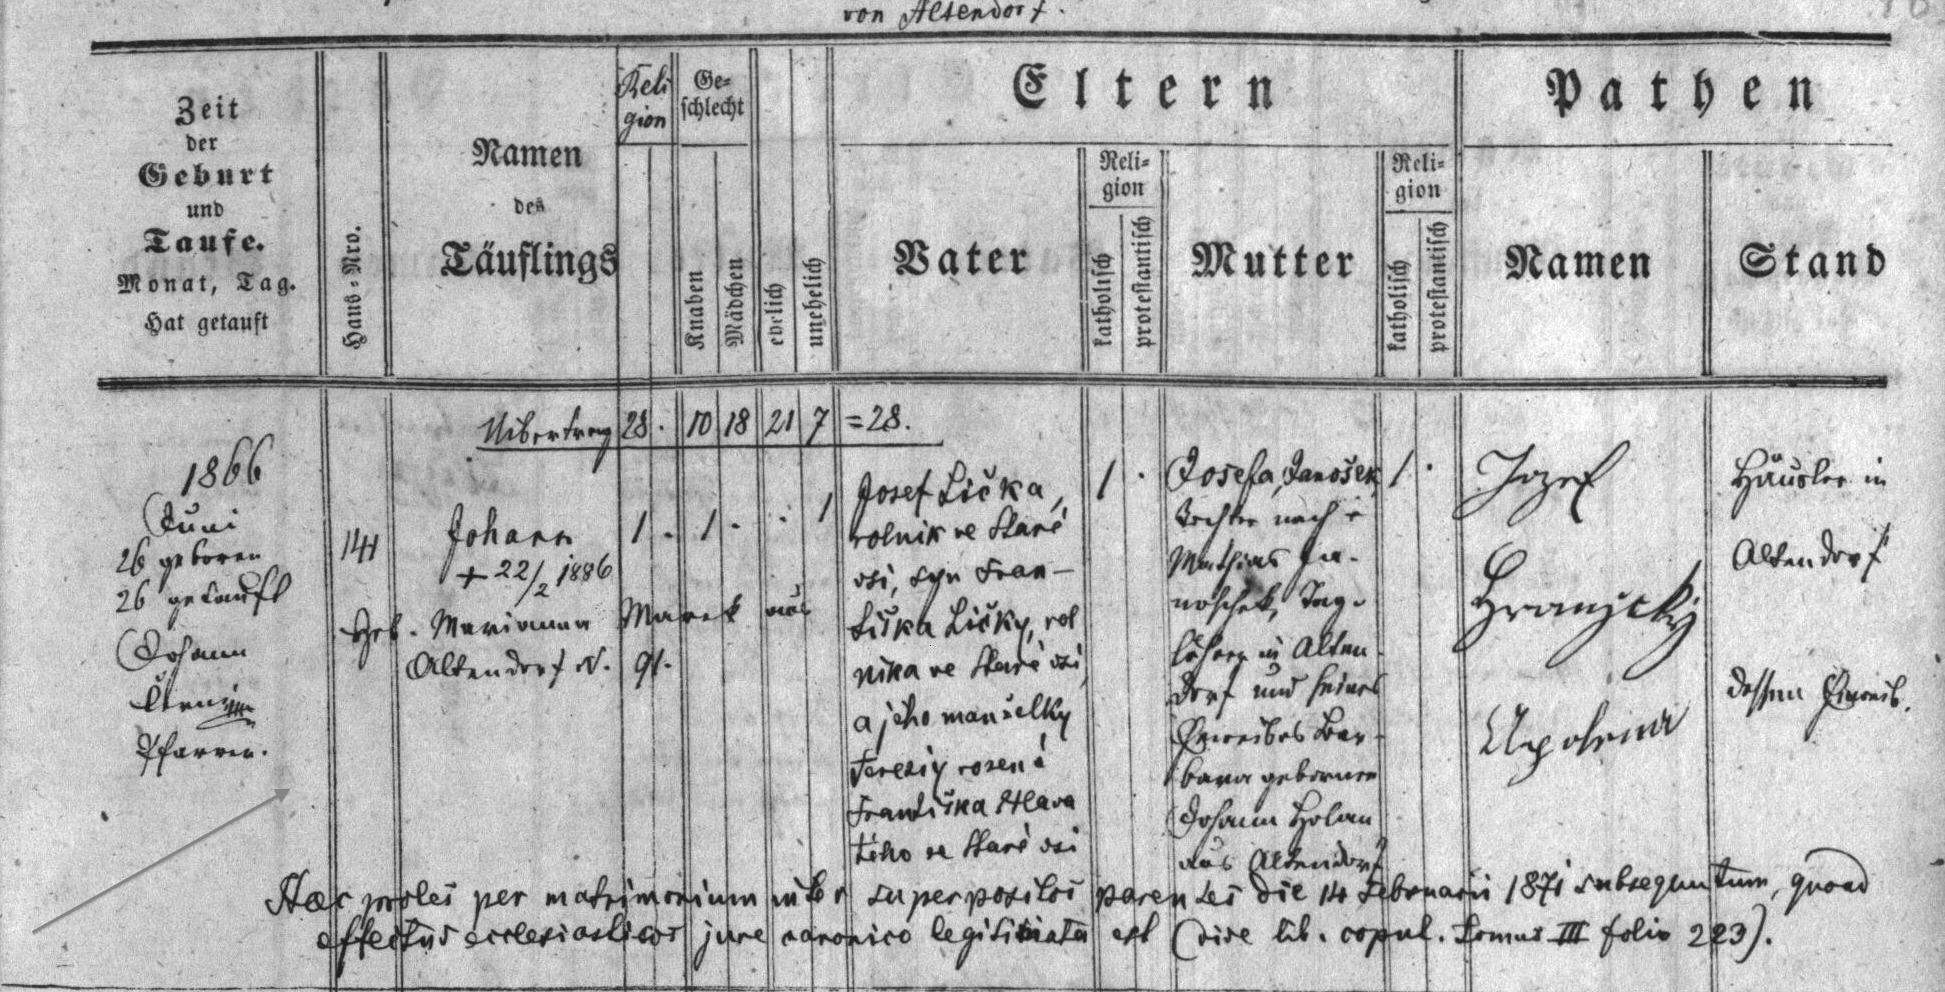 von Altendorf.
Zeit
der
Geburt
und
Taufe.
Monat, Tag.
Hat getauft
Haus-Nro.
Namen
des
Täuflings
Reli
gion
Ge-
schlecht
Knaben
Mädchen
ehelich
unehelich
Eltern
Vater
Reli-
gion
katholisch
protestantisch
Mutter
Reli-
gion
katholisch
protestantisch
Pathen
Namen
Stand
Uibertrag 28. 10 18 21 7 =28.
1866
Juni
26 geboren
26 getauft
Johann
Pfarrer.
141
Johann
+ 22/2 1886
Heb. Marianna Marek aus
Altendorf N. 91.
1 . 1 . . 1
Josef Lička,
rolnik ve Staré
vsi, syn Fran-
tiška Ličky, rol
nika ve Staré vsi,
a jeho manželky
Terezie rozené
Františka Hlava
tého ve Staré vsi
1 .
Josefa, Janošek,
Tochter nach
Mathias Ja-
noschek, Tag-
löhner in Alten-
dorf und seines
Eheweibes Bar-
bara geborner
Johann Holan
aus Altendorf
1 .
Jozef
Hranický
Apolena
Häusler in
Altendorf
dessen Eheweib.
Haec proles per matrimonium inter superpositos parentes die 14 Februarii 1871 subsequutum, quoad
effectus ecclesiasticos jure canonico legitimata est (vide lib. copul. Tomus III folio 223).